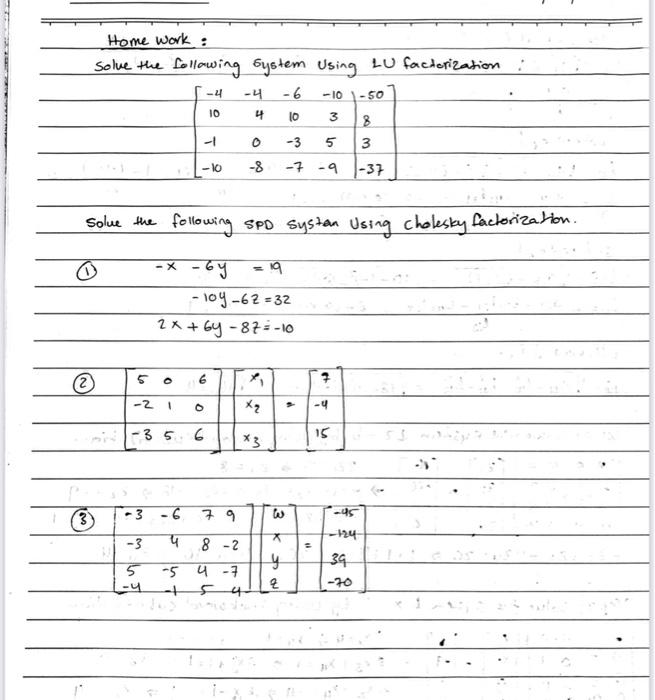 Home Work :
Solve the following System Using LU factorization :
-4 -4 -6 -10 | -50
10 4 10 3 | 8
-1 0 -3 5 | 3
-10 -8 -7 -9 | -37
Solve the following SPD Systan Using cholesky factorization.
① -x - 6y = 19
- 10y - 6z = 32
2x + 6y - 8z = -10
② 5 0 6 x1 7
-2 1 0 x2 = -4
-3 5 6 x3 15
③ -3 -6 7 9 w -45
-3 4 8 -2 x = -124
5 -5 4 -7 y 39
-4 -1 5 4 z -70